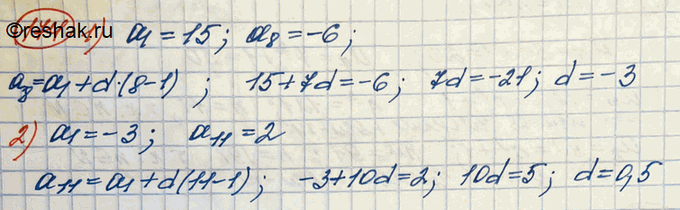 ©reshak.ru
1) a₁ = 15; a₈ = -6;
a₈ = a₁ + d·(8-1); 15 + 7d = -6; 7d = -21; d = -3
2) a₁ = -3; a₁₁ = 2
a₁₁ = a₁ + d(11-1); -3 + 10d = 2; 10d = 5; d = 0,5